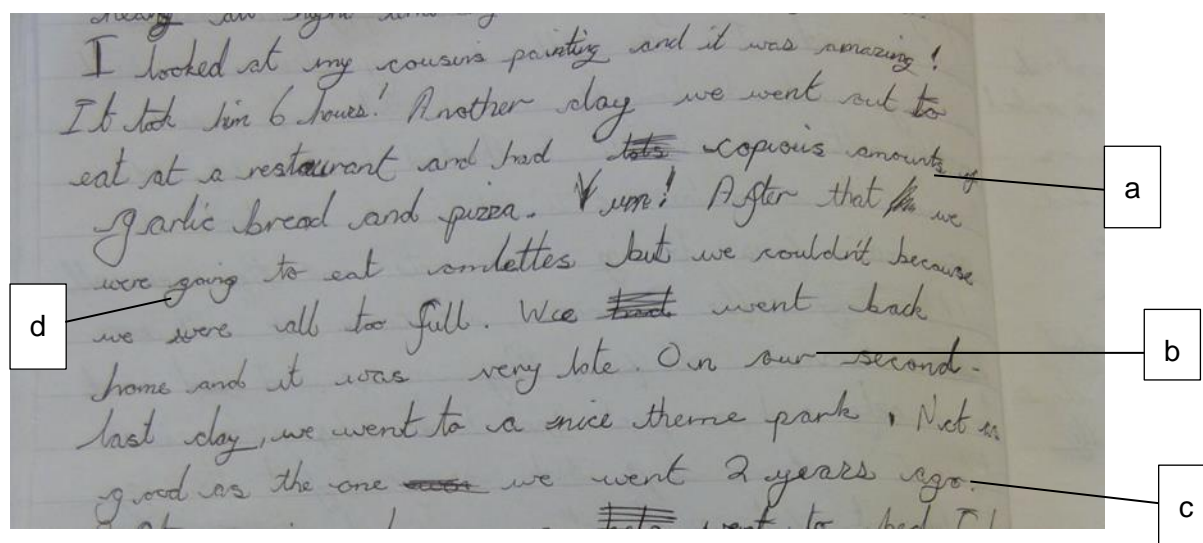 I looked at my cousins painting and it was amazing!
It took him 6 hours! Another day we went out to
eat at a restaurant and had lots copious amounts of
garlic bread and pizza. Yum! After that we
were going to eat omlettes but we couldn't because
we were all too full. Wce went back
home and it was very late. On our second-
last day, we went to a nice theme park. Not as
good as the one we went 2 years ago.
went to bed I
a
b
c
d